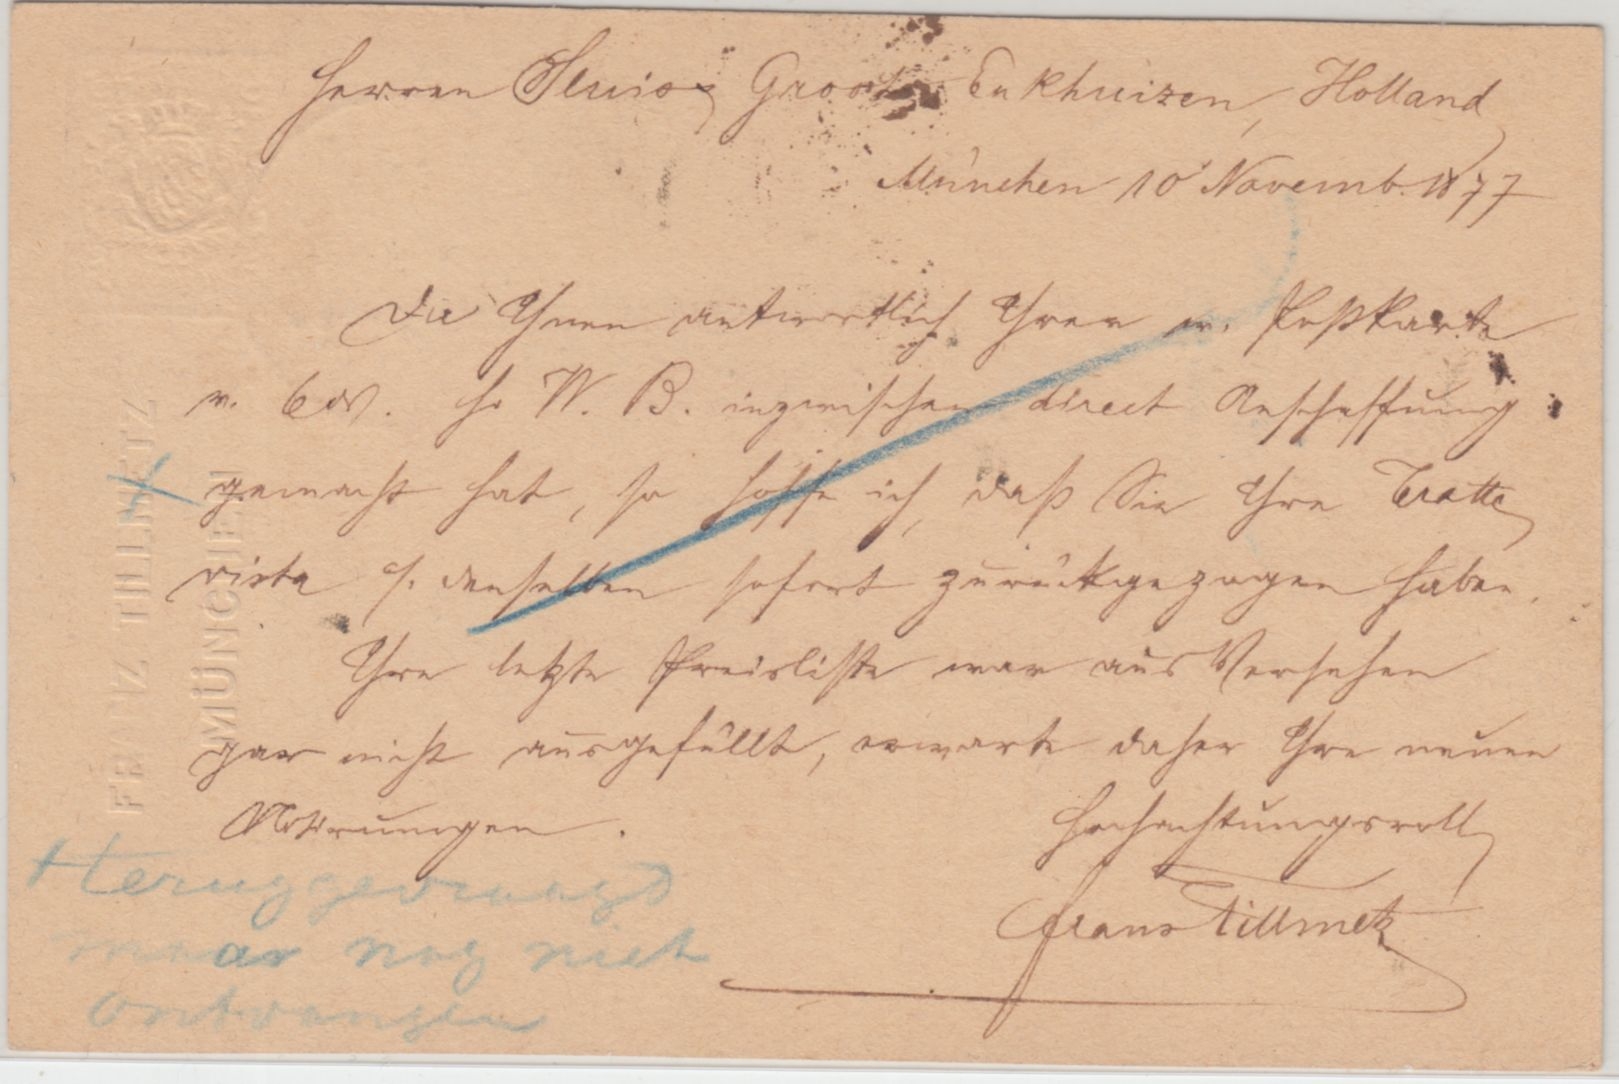 Herren Sluis & Groot Enkhuizen, Holland
München 10 Novemb. 1877
Da Ihnen antwortlich Ihrer w. Postkarte
v. 6 ds. Hr W. B. inzwischen direct Anschaffung
gemacht hat, so hoffe ich, daß Sie Ihre Tratte
vista a/. denselben sofort zurückgezogen haben.
Ihre letzte Preisliste war aus Versehen
gar nicht ausgefüllt, erwarte daher Ihre neuen
Notirungen.
Hochachtungsvoll
Franz Tillmetz
FRANZ TILLMETZ
MÜNCHEN
teruggevraagd
maar nog niet
ontvangen